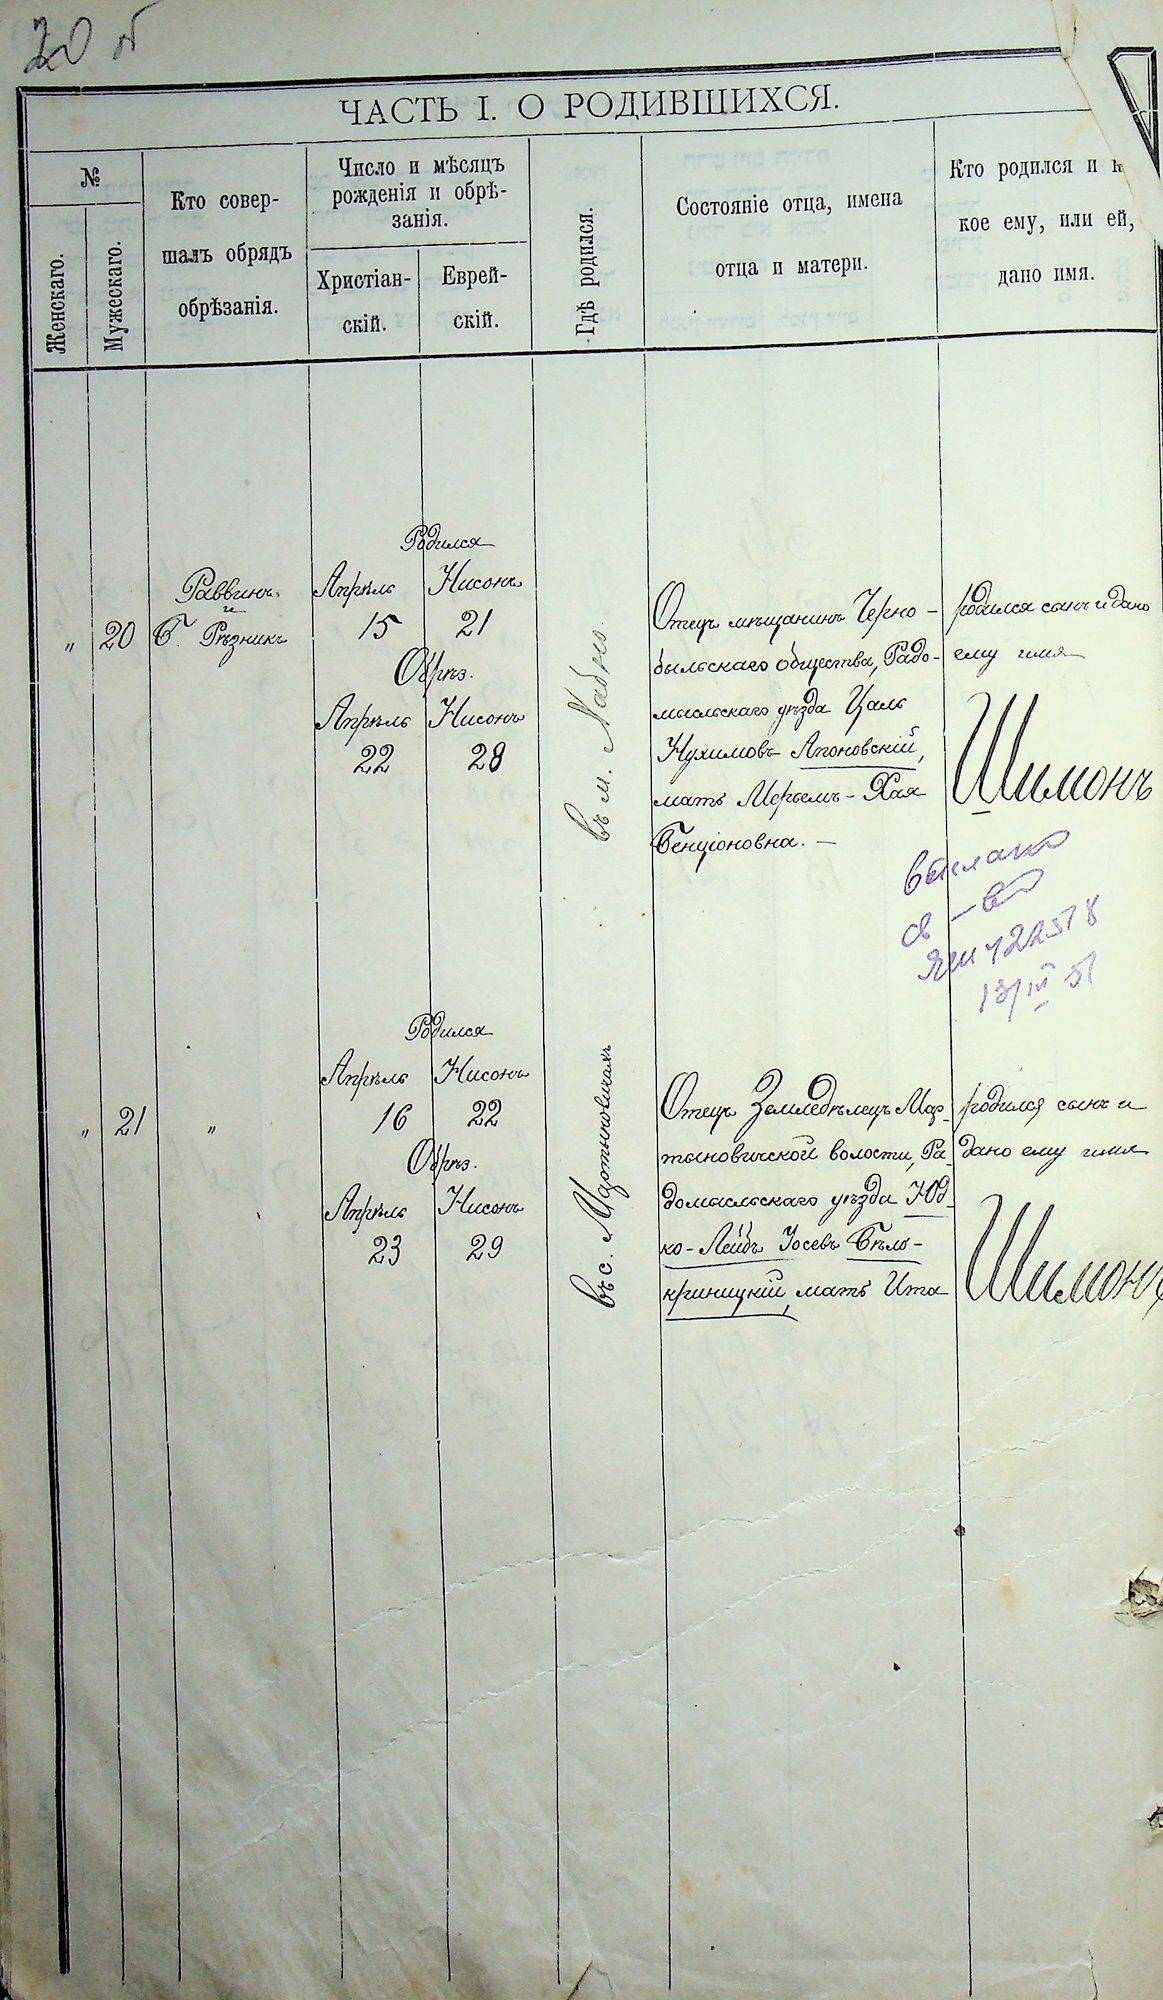 20 об
ЧАСТЬ I. О РОДИВШИХСЯ.
№
Женскаго.
Мужескаго.
Кто совер-
шалъ обрядъ
обрѣзанія.
Число и мѣсяцъ
рожденія и обрѣ-
занія.
Христіан-
скій.
Еврей-
скій.
Гдѣ родился.
Состояніе отца, имена
отца и матери.
Кто родился и к
кое ему, или ей,
дано имя.
„ 20
Раввинъ
и
Б. Рѣзникъ
Родился
Апрѣль Нисонъ
15 21
Обрѣз.
Апрѣль Нисонъ
22 28
въ м. Хабно.
Отецъ мѣщанинъ Черно-
быльскаго общества, Радо-
мысльскаго уѣзда Цаль
Нухимовъ Апоновскій,
мать Мерьемъ-Хая
Бенціоновна. —
родился сынъ и дано
ему имя
Шимонъ
Выслано
св-во
422578
13/III 51
„ 21 „
Родился
Апрѣль Нисонъ
16 22
Обрѣз.
Апрѣль Нисонъ
23 29
въ с. Мартыновичахъ
Отецъ Земледѣлецъ Мар-
тыновичской волости, Ра-
домысльскаго уѣзда Юд-
ко-Лейбъ Іосевъ Бѣло-
криницкій, мать Ита
родился сынъ и
дано ему имя
Шимонъ